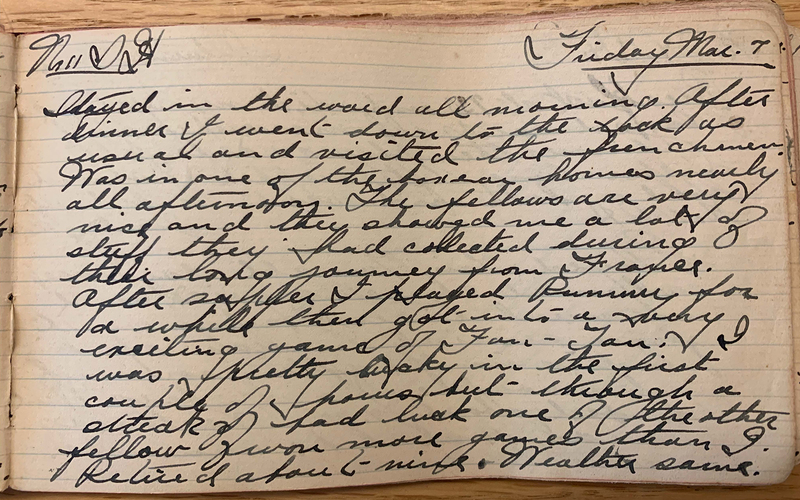 Friday Mar. 7
Stayed in the ward all morning. After
dinner I went down to the as
usual and visited the frenchmen.
Was in one of the boxcar homes nearly
all afternoon. The fellows are very
nice and they showed me a lot of
stuff they had collected during
their long journey from France.
After supper I played Rummy for
a while then got into a very
exciting game of Fan-Tan. I
was pretty lucky in the first
couple of hours but through a
streak of bad luck one of the other
fellows won more games than I.
Retired about nine. Weather same.